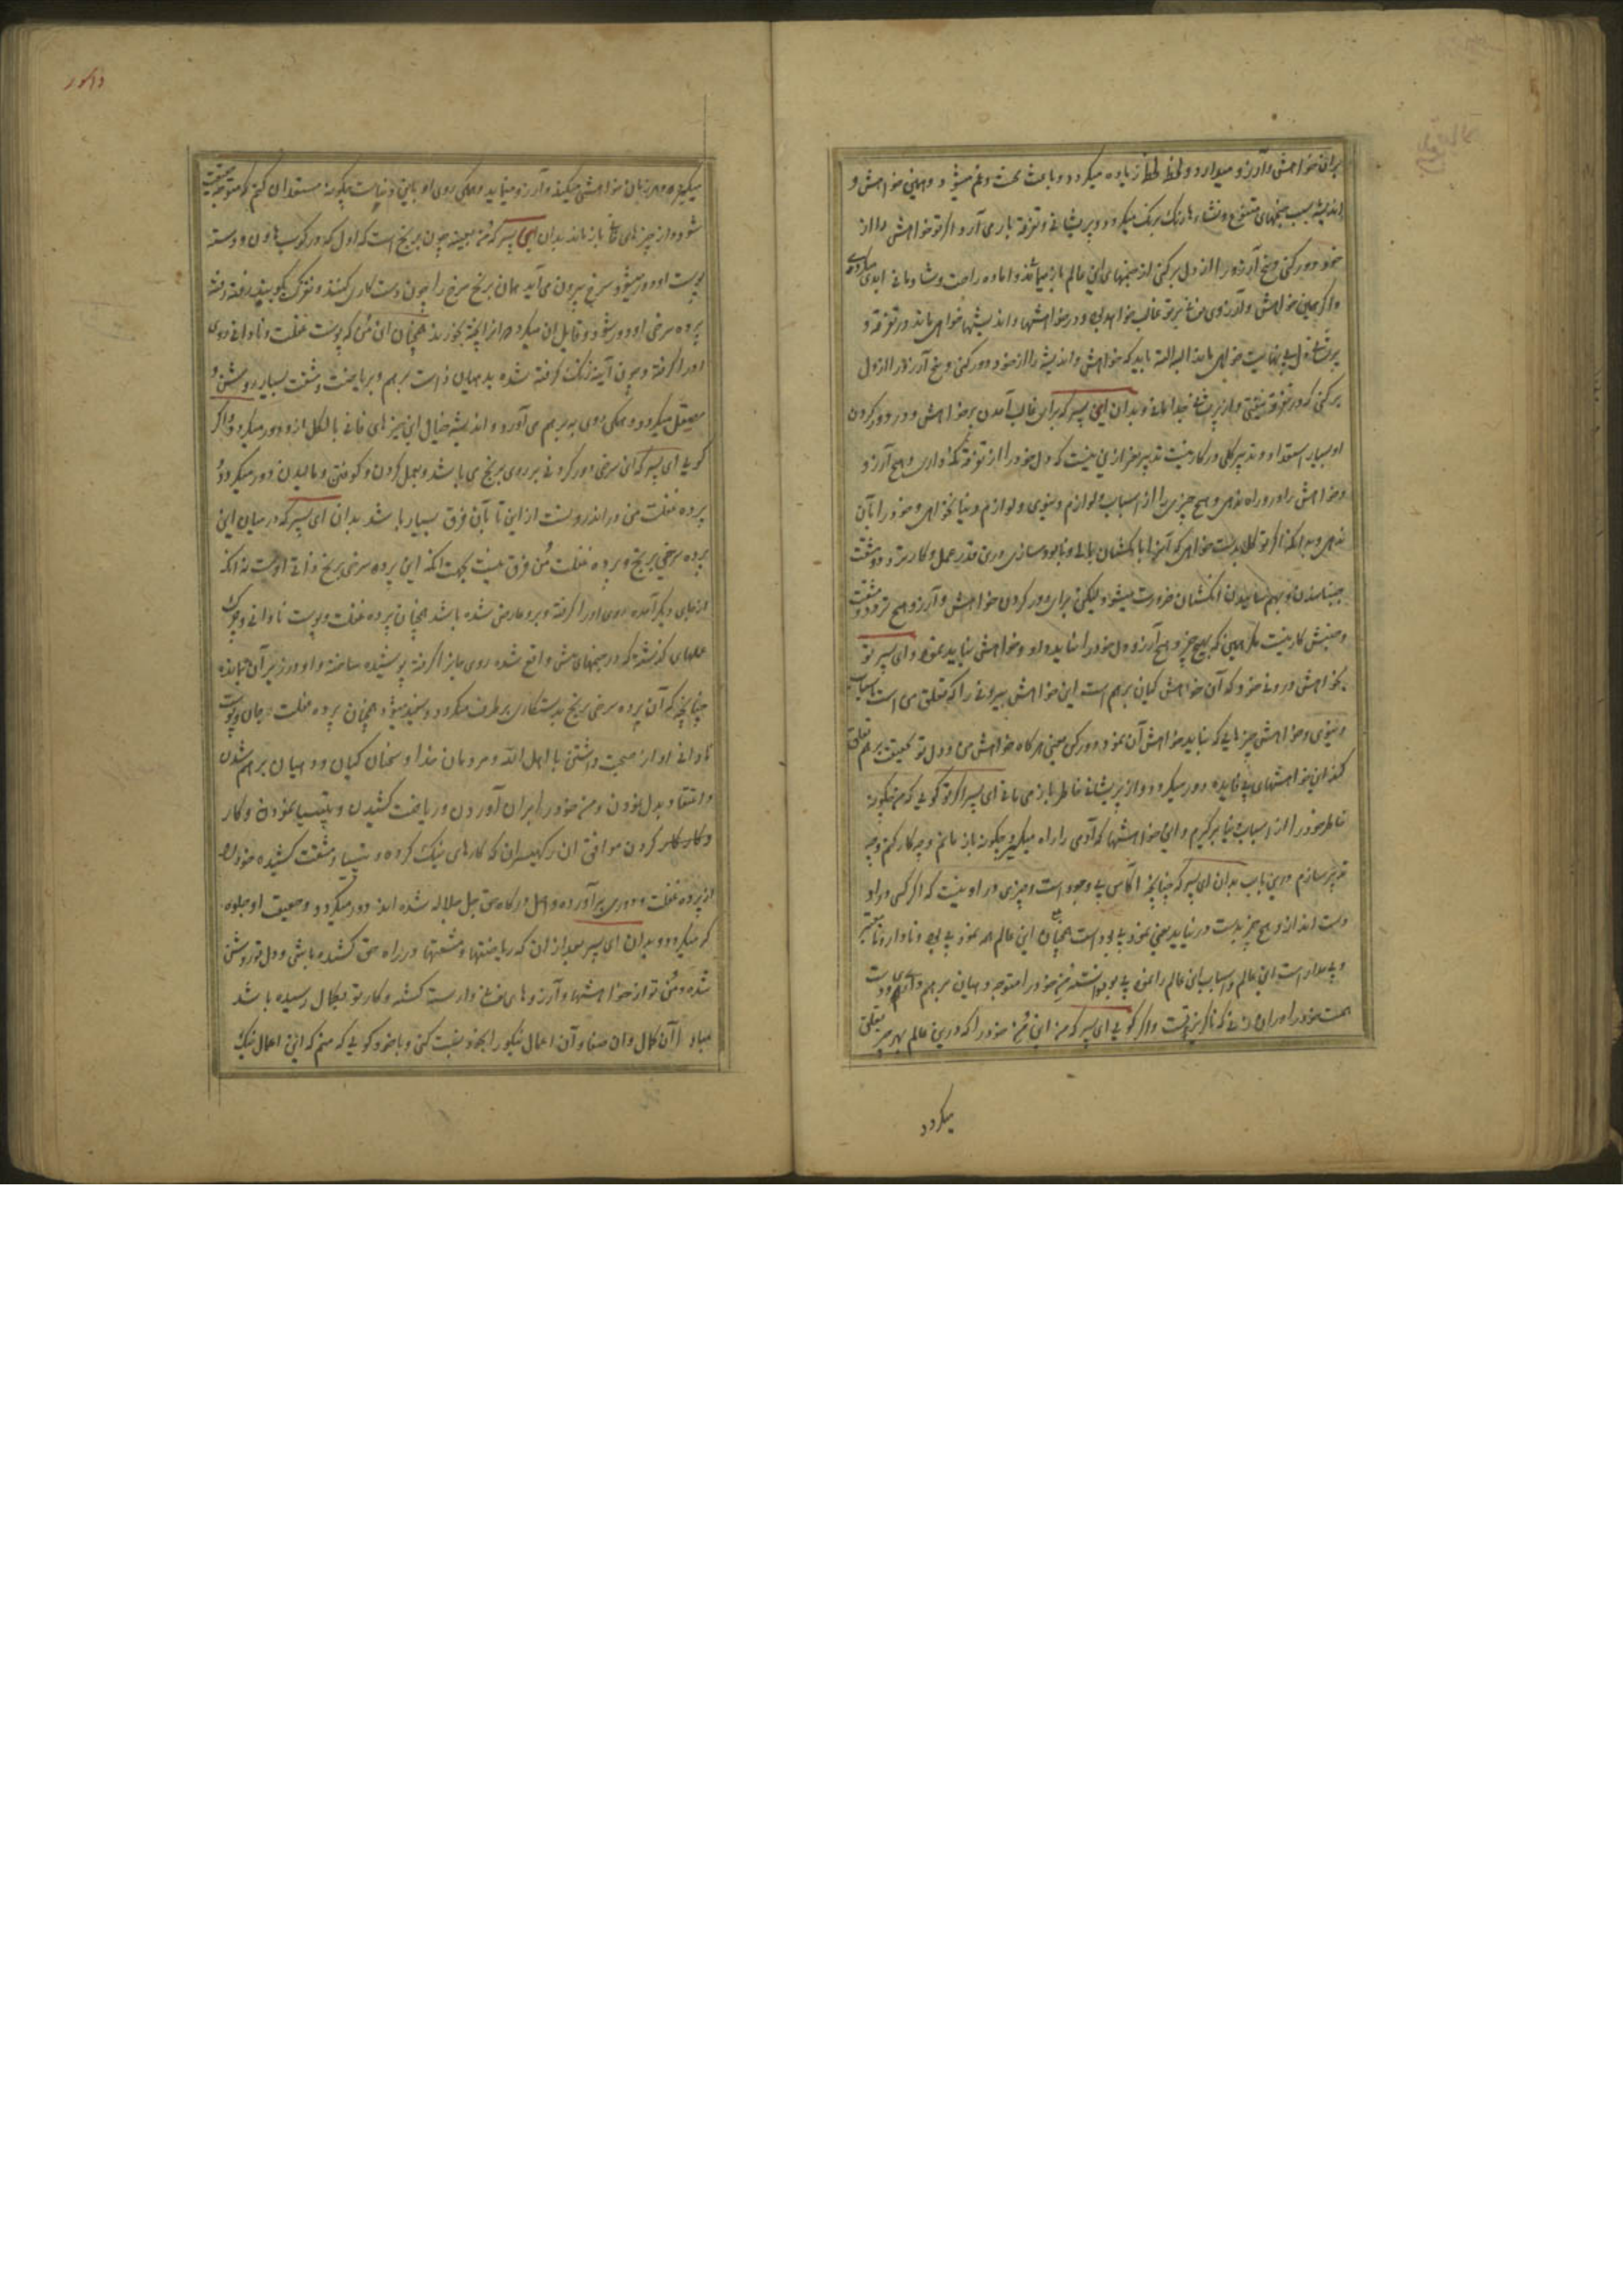 برای خواهش و آرزو میدارد و لحظه لحظه زیاده میگردد و باعث محنت و غم میشود و همین خواهش و
اندیشه بسبب جنمهای متنوع و منشاء رنگ برنگ میگردد و پریشانی و تفرقه بار می آرد و اگر تو خواهش را از
خود دور کنی و بیخ آرزو را از دل برکنی از جنمهای این عالم باز میمانی و آماده راحت و شادمانی ابدی میگردی
و اگر همین خواهش و آرزوی بر تو غالب خواهد بود در خواهشها و اندیشها خواهی ماند در تفرقه و
خواهی ماند البته البته باید که خواهش و اندیشه را از خود دور کنی و بیخ آرزو را از دل
برکنی که در تفرقه نیفتی و از جدا مانی و بدان ای پسر که برای غالب آمدن بر خواهش و در دور کردن
او بسیار استعداد و تدبیر کلی درکار نیست تدبیر جز ازین نیست که دل خود را از تفرقه نگهداری و هیچ آرزو
و خواهش را در و راه ندهی و هیچ چیزی را از اسباب و لوازم دنیوی و لوازم دنیا نخواهی و خود را بآن
ندهی اگر تو گل بدست خواهی که آنرا با انگشتان بمالی و نابود سازی درین قدر عمل و کار تردد و مشقت
جنبانیدن و بهم سائیدن انگشتان ضرورت میشود لیکن برای دور کردن خواهش و آرزو هیچ تردد و مشقت
و جنبش کار نیست مگر همین که هیچ چیز و هیچ آرزو دل خود را نباید داد و خواهش نباید نمود و ای پسر تو
بخواهش درونی خود که آن خواهش گیان برهم است این خواهش بیرونی را که متعلق می است باسباب
دنیوی و خواهش چیزهایی که نباید خواهش آن نمود دور کن یعنی هرگاه خواهش من و دل تو بحقیقت برهم تعلق
کند این خواهشهای بی فایده دور میگردد و از پریشانی خاطر باز می مانی ای پسر اگر تو گویی که من چگونه
خاطر خود را از اسباب دنیا برگیرم و این خواهشها که آدمی را راه میگیرد چگونه باز مانم و چه کار کنم و چه
تدبیر سازم درین باب بدان ای پسر که چنانچه آکاس بی وجود است و چیزی در او نیست که اگر کسی در او
دست اندازد هیچ چیز بدست در نیاید یعنی نمود بی بود است همچنان این عالم هم نمود بی بود و ناپایدار و نامعتبر
و بی مدار است این عالم و اسباب این عالم را نمود بی بود دانسته من خود را متوجه دهیان برهم
همت خود را بدان که ناگزیر تست و اگر گویی ای پسر که من این من خود را که درین عالم بهر چیز تعلق
میگردد
میگیرد و هر زمان خواهش میکند و آرزو مینماید و همگی روی او باین دنیاست چگونه مستعد آن کنم که متوجه حقیقت
شود و از چیزهای فانی باز ماند بدان ای پسر که من بعینه چون برنج است که اول که در کوب هاون و دسته
پوست او دور میشود و سرخ بیرون می آید همان برنج سرخ را چون دست کاری کنند و بکوبند رفته رفته
پرده سرخی او دور شود و قابل آن میگردد که او را پخته بخورند همچنان این من که پوست غفلت و نادانی روی
او را گرفته و چون آینه زنگ گرفته شده بدهیان ذات برهم و بریاضت و مشقت بسیار روشن و
صیقل میگردد و همگی روی به برهم می آورد و اندیشه خیال این چیزهای فانی بالکل از و دور میگردد و اگر
گویی ای پسر که آن سرخی دور کردنی بر روی برنج می باشد و بعمل کردن و کوفتن و مالیدن دور میگردد
پرده غفلت من در اندرونست از این تا بآن فرق بسیار باشد بدان ای پسر که در میان این
پرده سرخی برنج و پرده غفلت من فرق نیست بجهت آنکه این پرده سرخی برنج ذاتی اوست نه آنکه
از جای دیگر آمده روی او را گرفته و برو عارض شده باشد همچنان پرده غفلت و پوست نادانی و چرک
عملهای گذشته که در جنمهای پیش واقع شده روی ما را گرفته پوشیده ساخته و او در زیر آن مانده
چنانچه که آن پرده سرخی برنج بدستکاری برطرف میگردد و سفید میشود همچنان پرده غفلت جان و پوست
نادانی او از صحبت داشتن با اهل الله و مردمان خدا و سخنان گیان و دهیان برهم شدن
و اعتقاد بدل نمودن و من خود را بران آوردن و ریاضت کشیدن و تپسیا نمودن و کار
و کار کردن موافق آن رکهیسران که کارهای نیک کرده و تپسیا و مشقت کشیده خود را
از پرده غفلت و دوری برآورده واصل درگاه حق جل جلاله شده اند دور میگردد و حقیقت او جلوه
گر میگردد و بدان ای پسر بعد از آن که ریاضتها و مشقتها در راه حق کشیده باشی و دل تو روشن
شده و من تو از خواهشها و آرزوهای وارسته گشته و کار تو بکمال رسیده باشد
مبادا آن کمال و آن صفا و آن اعمال نیکو را بخود نسبت کنی و با خود گویی که منم که این اعمال نیک